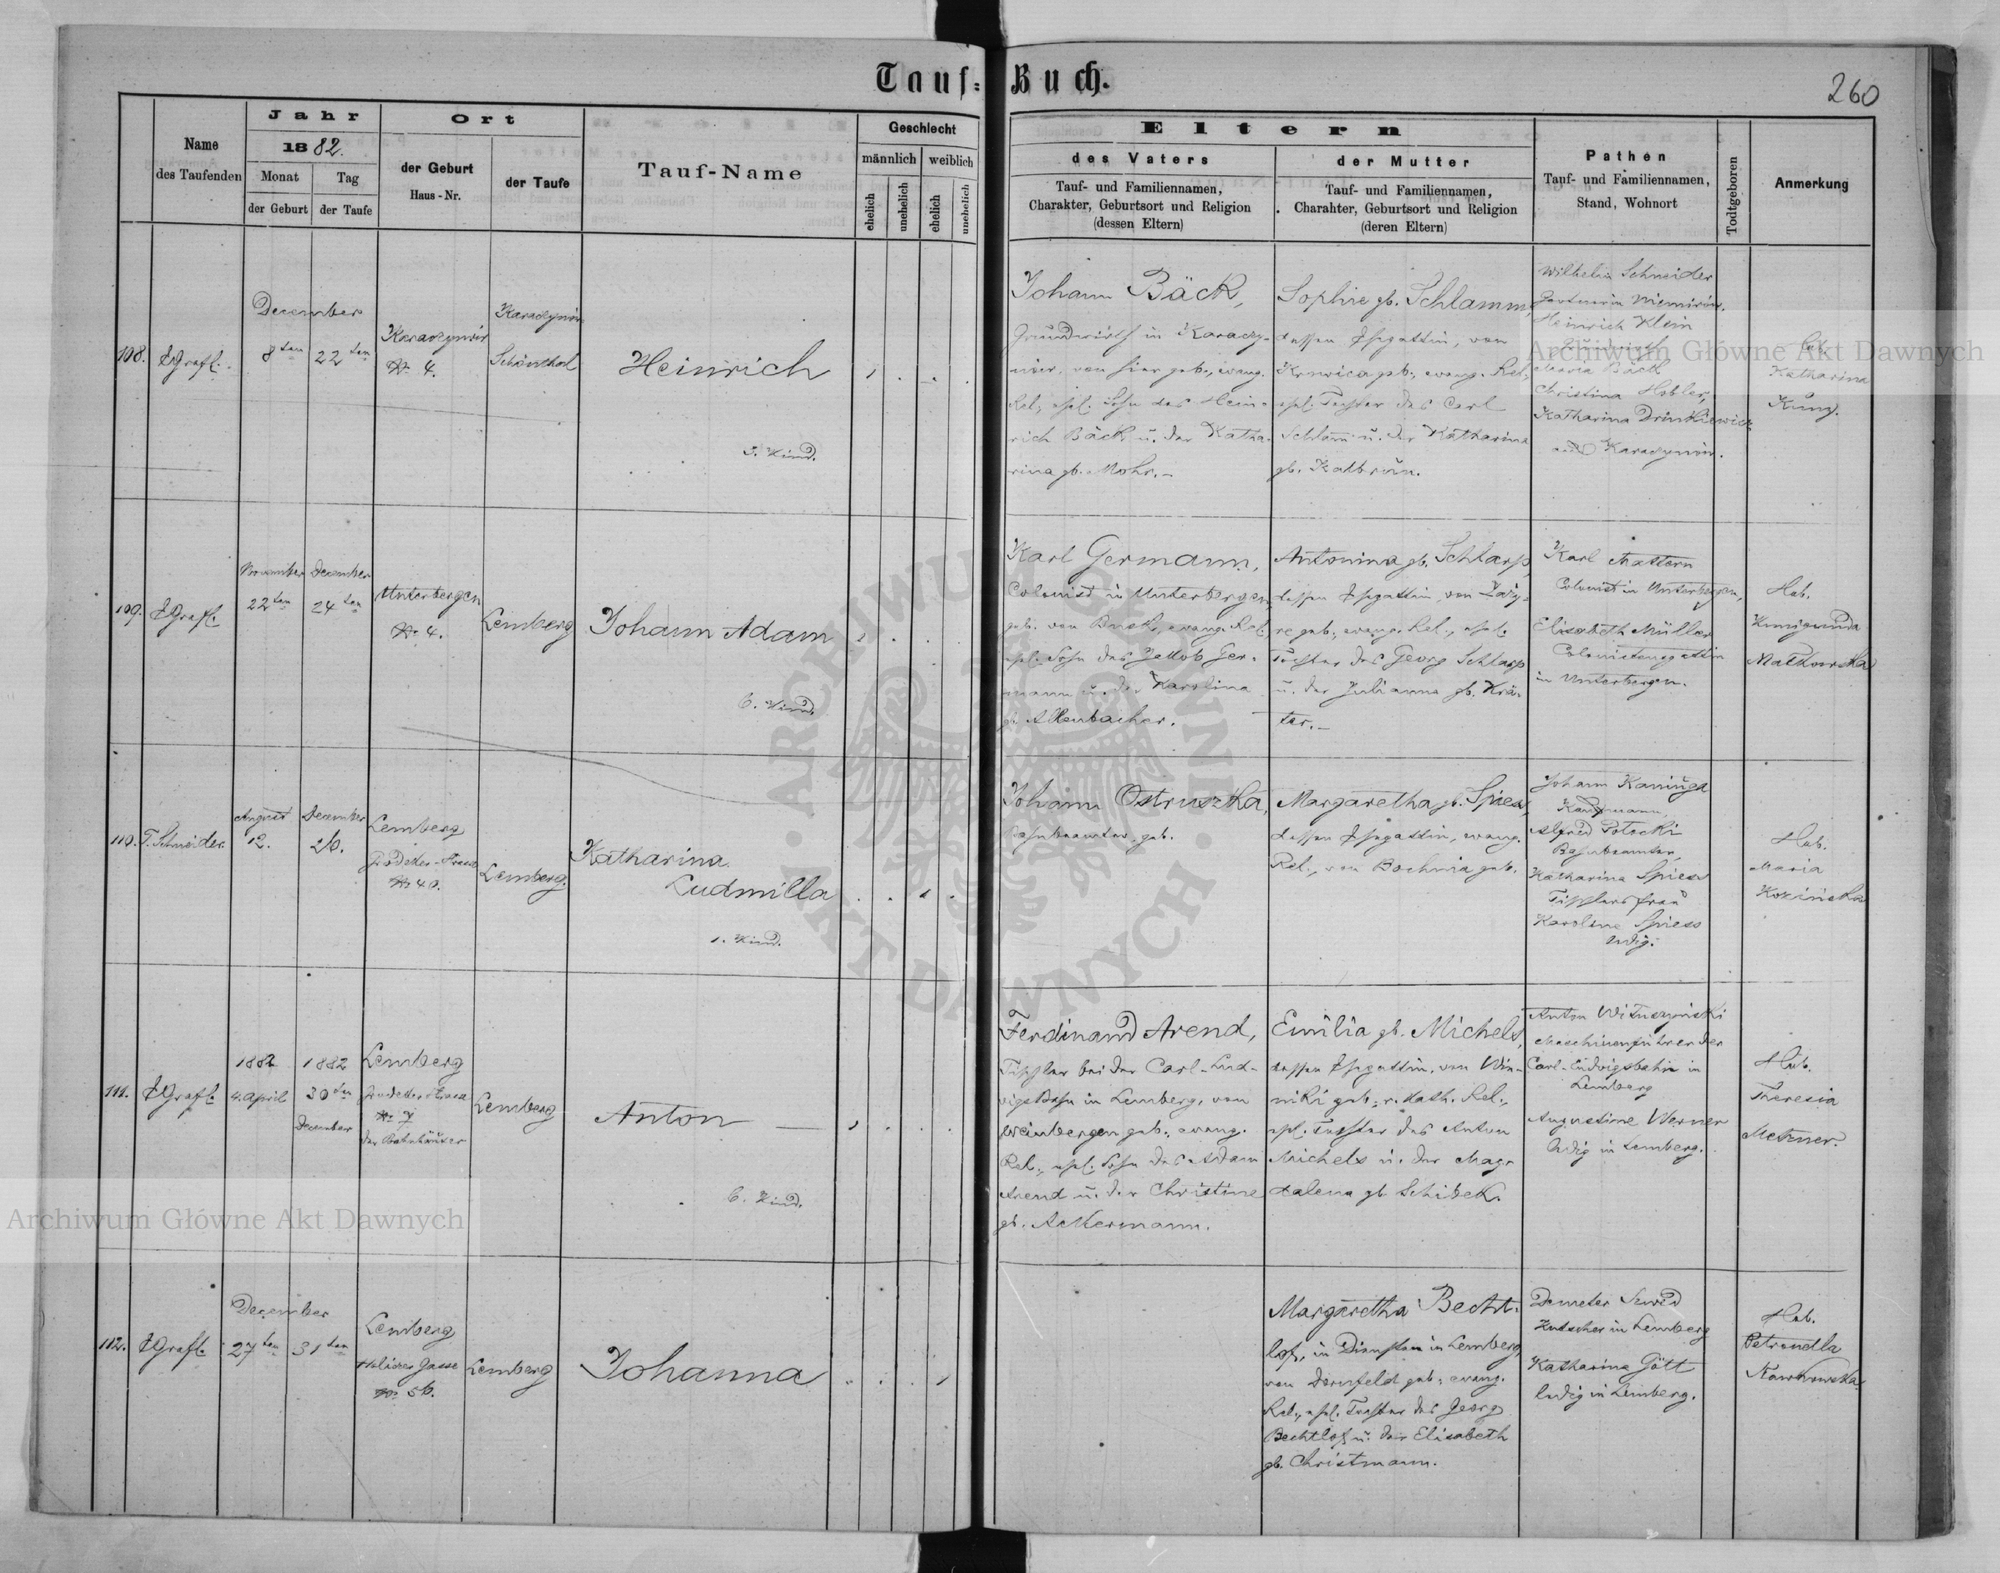 Tauf-Buch.
260
Name
des Taufenden
Jahr
1882.
Monat
der Geburt
Tag
der Taufe
Ort
der Geburt
Haus-Nr.
der Taufe
Tauf-Name
Geschlecht
männlich
weiblich
ehelich
unehelich
ehelich
unehelich
Eltern
des Vaters
Tauf- und Familiennamen,
Charakter, Geburtsort und Religion
(dessen Eltern)
der Mutter
Tauf- und Familiennamen,
Charahter, Geburtsort und Religion
(deren Eltern)
Pathen
Tauf- und Familiennamen,
Stand, Wohnort
Todtgeboren
Anmerkung
108.
December
8ten
22ten
No 4.
Schönthal
Heinrich
3. Kind.
Johann Bäck,
Grundwirth in Karaczy-
nów, von hier geb., evang.
Rel., ehel. Sohn des Hein-
rich Bäck u. der Katha-
rina gb. Mohr.-
Sophie gb. Schlamm,
dessen Ehegattin, von
geb., evang. Rel.
ehel. Tochter des Carl
Schlam u. der Katharina
gb. Kalbrun.
Wilhelm Schneider
Heinrich Klein
Maria Bäck
Christina Hobler,
Katharina
aus Karaczynów.
Heb.
Katharina
Kunz.
109.
November
22ten
December
24ten
Unterbergen
No 4.
Lemberg
Johann Adam
6. Kind.
Karl Germann,
Colonist in Unterbergen,
geb. von evang. Rel.
ehel. Sohn des Jakob Ger-
mann u. der Karolina
gb. Allenbacher.
Antonina gb. Schlarp,
dessen Ehegattin, von
geb., evang. Rel., ehel.
Tochter des Georg Schlarp
u. der Julianna gb. Krä-
ter.-
Karl Mattern
Colonist in Unterbergen,
Elisabeth Müller
Colonistengattin
in Unterbergen.
Heb.
Kunigunda
Malkowska
110.
T. Schneider
August
12.
December
26.
Lemberg
No 40.
Lemberg.
Katharina
Ludmilla
1. Kind.
Johann Ostruszka,
Bahnbeamter, geb.
Margaretha gb. Spiess,
dessen Ehegattin, evang.
Rel., von Bochnia geb.
Johann Kaminga
Kaufmann,
Alfred Potocki
Bahnbeamter,
Katharina Spiess
Tischlersfrau
Karoline Spiess
ledig.
Heb.
Maria
Kozinska
111.
1882
4. April
1882
30ten
December
Lemberg
No 7
der Bahnhäuser
Lemberg
Anton
6. Kind.
Ferdinand Arend,
Tischler bei der Carl-Lud-
wigs Bahn in Lemberg, von
Weinbergen geb., evang.
Rel., ehel. Sohn des Adam
Arend u. der Christine
gb. Ackermann.
Emilia gb. Michels,
dessen Ehegattin, von Win-
niki geb., r. kath. Rel.,
ehel. Tochter des Anton
Michels u. der Mag-
dalena gb. Schibek.
Anton Wituszynski
Maschinenführer der
Carl-Ludwigsbahn in
Lemberg
Augustine Werner
ledig in Lemberg.
Heb.
Theresia
Metzner.
112.
December
27ten
31ten
Lemberg
Haliczer Gasse
No 56.
Lemberg
Johanna
Margaretha Becht-
loff, in Diensten in Lemberg,
von Dornfeld geb., evang.
Rel., ehel. Tochter des Georg
Bechtloff u. der Elisabeth
gb. Christmann.
Demeter Szwed
Kutscher in Lemberg
Katharina Gött
ledig in Lemberg.
Heb.
Petronella
Nawrowska
Archiwum Główne Akt Dawnych
Archiwum Główne Akt Dawnych
ARCHIWUM GŁÓWNE AKT DAWNYCH